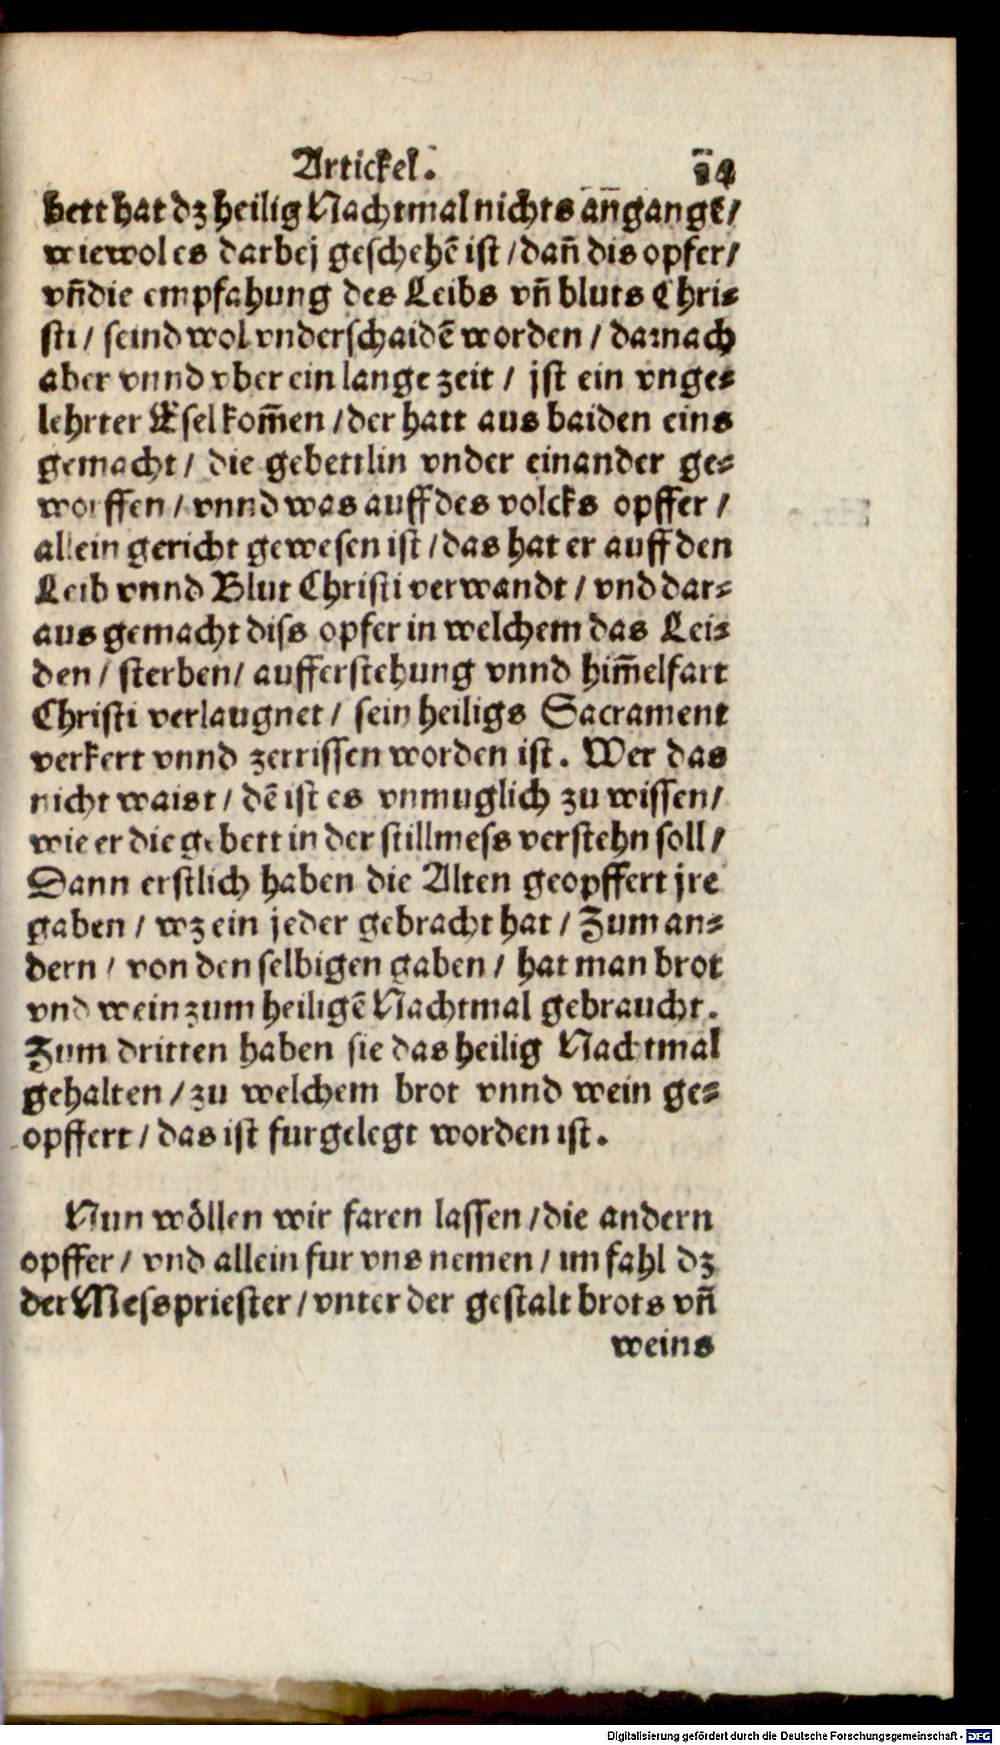 Artickel. 14
bett hat dz heilig Nachtmal nichts an̄gangē/
wiewol es darbej geschehē ist / dañ dis opfer/
vñ die empfahung des Leibs vñ bluts Chri⸗
sti / seind wol vnderschaidē worden / darnach
aber vnnd vber ein lange zeit / jst ein vnge⸗
lehrter Esel kom̄en / der hatt aus baiden eins
gemacht / die gebettlin vnder einander ge⸗
worffen / vnnd was auff des volcks opffer /
allein gericht gewesen ist / das hat er auff den
Leib vnnd Blut Christi verwandt / vnd dar⸗
aus gemacht diss opfer in welchem das Lei⸗
den / sterben / aufferstehung vnnd him̄elfart
Christi verlaugnet / sein heiligs Sacrament
verkert vnnd zerrissen worden ist. Wer das
nicht waist / dē ist es vnmuglich zu wissen /
wie er die gebett in der stillmess verstehn soll /
Dann erstlich haben die Alten geopffert jre
gaben / wz ein jeder gebracht hat / Zum an⸗
dern / von den selbigen gaben / hat man brot
vnd wein zum heiligē Nachtmal gebraucht.
Zum dritten haben sie das heilig Nachtmal
gehalten / zu welchem brot vnnd wein ge⸗
opffert / das ist furgelegt worden ist.
Nun wöllen wir faren lassen / die andern
opffer / vnd allein fur vns nemen / im fahl dz
der Messpriester / vnter der gestalt brots vñ
weins
Digitalisierung gefördert durch die Deutsche Forschungsgemeinschaft - DFG